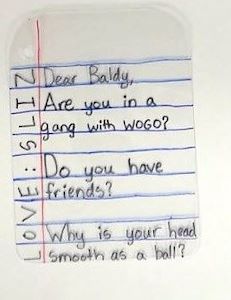 Dear Baldy,
Are you in a
gang with WOGO?
Do you have
friends?
Why is your head
smooth as a ball?
LOVE: SLIN